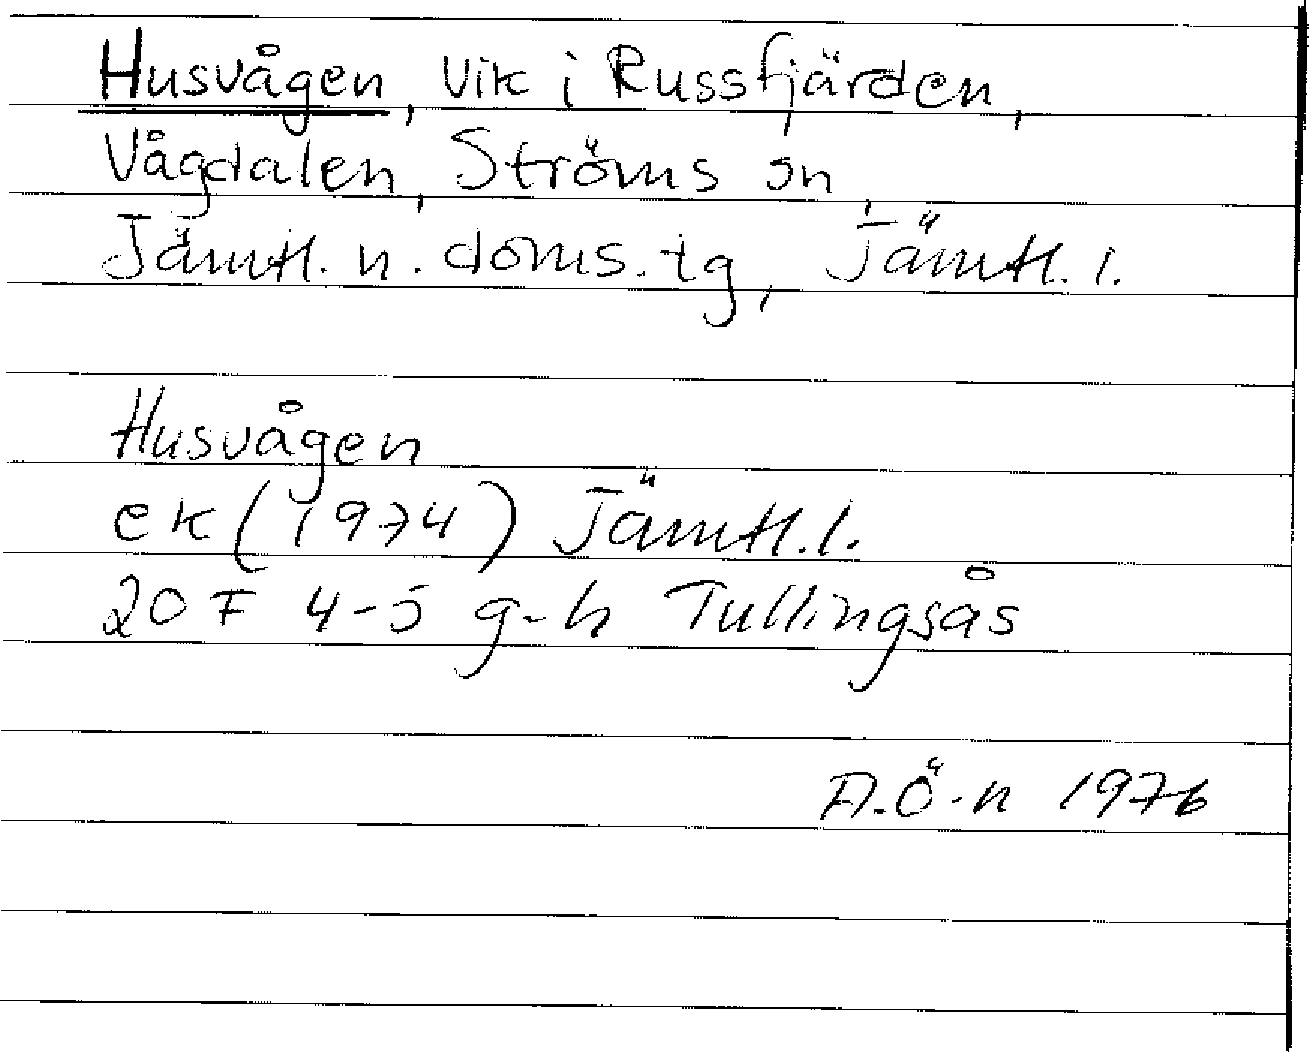 Husvågen, vik i Russfjärden,
Vågdalen, Ströms sn,
Jämtl. n. doms. tg, Jämtl. l.
Husvågen
ek (1974) Jämtl. l.
20 F 4-5 g-h Tullingsås
A.Ö-n 1976